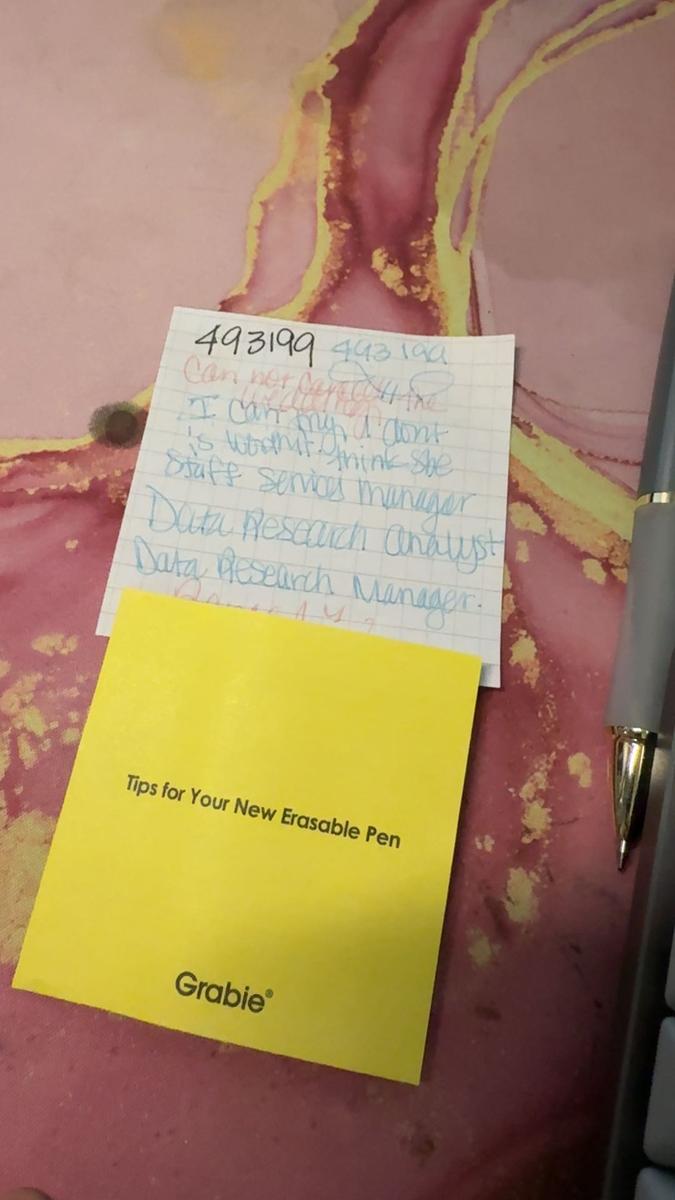 493199 493199
Can not the
I can I dont
is think She
Staff Services manager
Data Research analyst
Data Research Manager.
Tips for Your New Erasable Pen
Grabie®